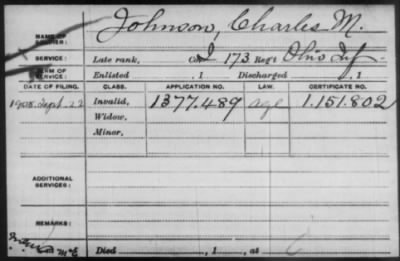 NAME OF SOLDIER: Johnson, Charles M.
SERVICE: Late rank, Co. I 173 Reg't Ohio Inf
TERM OF SERVICE: Enlisted , 1 Discharged , 1
DATE OF FILING. CLASS. APPLICATION NO. LAW. CERTIFICATE NO.
1908. Sept. 22 Invalid, 1377.489 age 1.151.802
Widow,
Minor,
ADDITIONAL SERVICES:
REMARKS:
Died , 1 , at